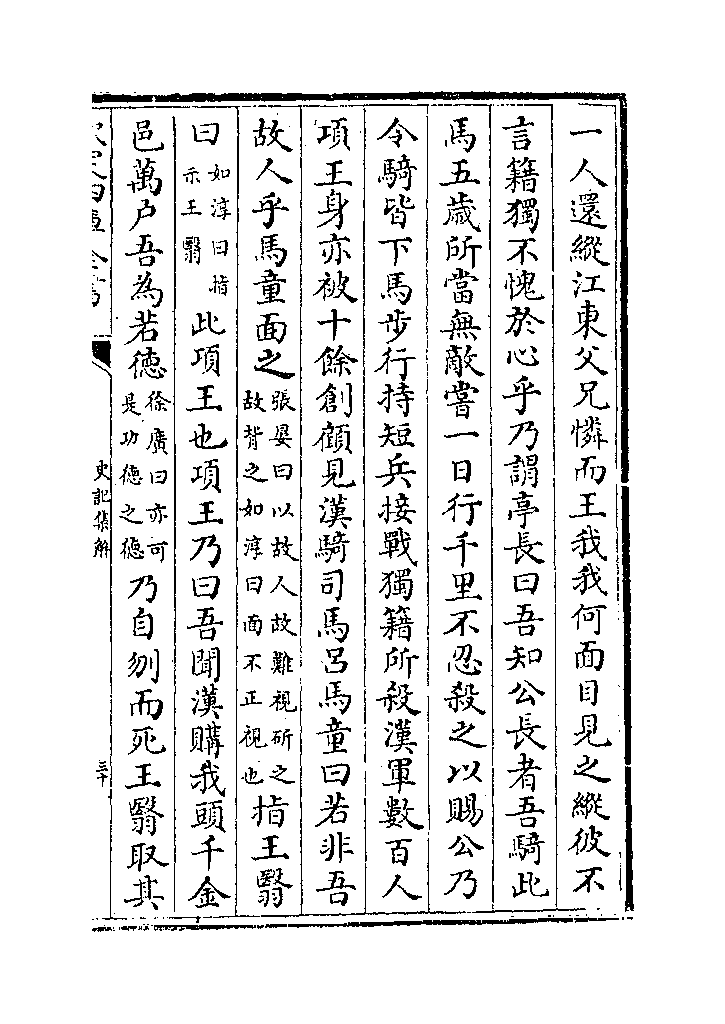 一人還縱江東父兄憐而王我我何面目見之縱彼不
言籍獨不愧於心乎乃謂亭長曰吾知公長者吾騎此
馬五歲所當無敵嘗一日行千里不忍殺之以賜公乃
令騎皆下馬步行持短兵接戰獨籍所殺漢軍數百人
項王身亦被十餘創顧見漢騎司馬呂馬童曰若非吾
故人乎馬童面之張晏曰以故人故難視斫之故背之如淳曰面不正視也指王翳
曰如淳曰指示王翳此項王也項王乃曰吾聞漢購我頭千金
邑萬户吾為若德徐廣曰亦可是功德之德乃自刎而死王翳取其
史記集解
三十